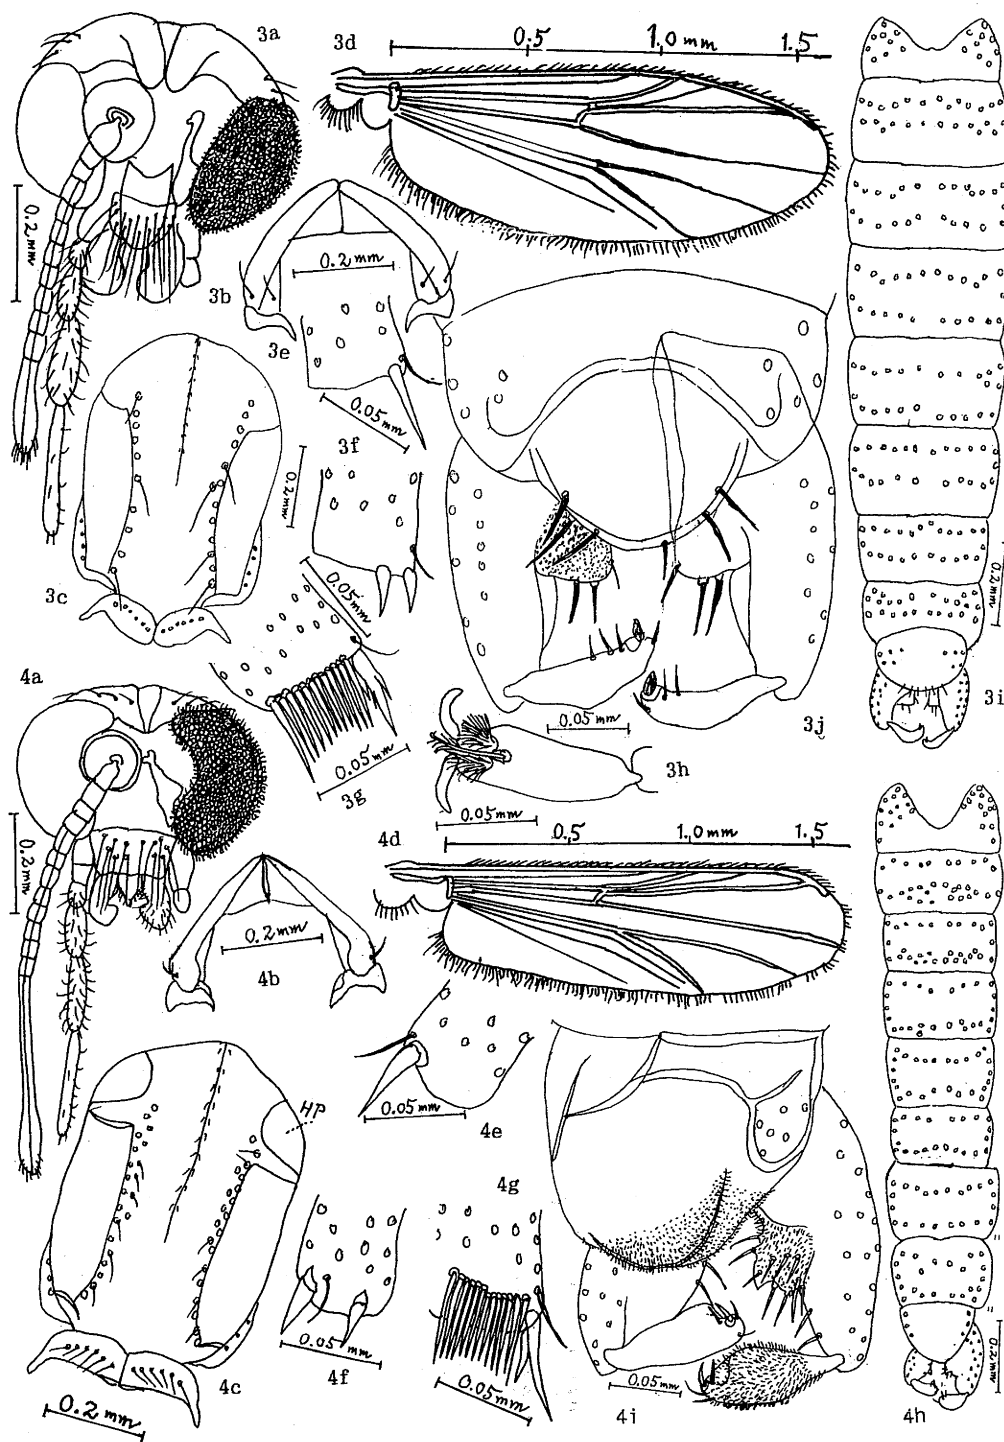 3a
3d
0.5
1.0 mm
1.5
0.2 mm
3b
0.2 mm
3e
0.05 mm
3f
0.2 mm
3c
0.05 mm
0.05 mm
3g
0.05 mm
3j
3h
0.05 mm
0.2 mm
3i
4a
0.2 mm
4d
0.5
1.0 mm
1.5
0.2 mm
4b
0.05 mm
4e
HP
4g
4c
0.2 mm
0.05 mm
4f
0.05 mm
0.05 mm
4i
0.2 mm
4h